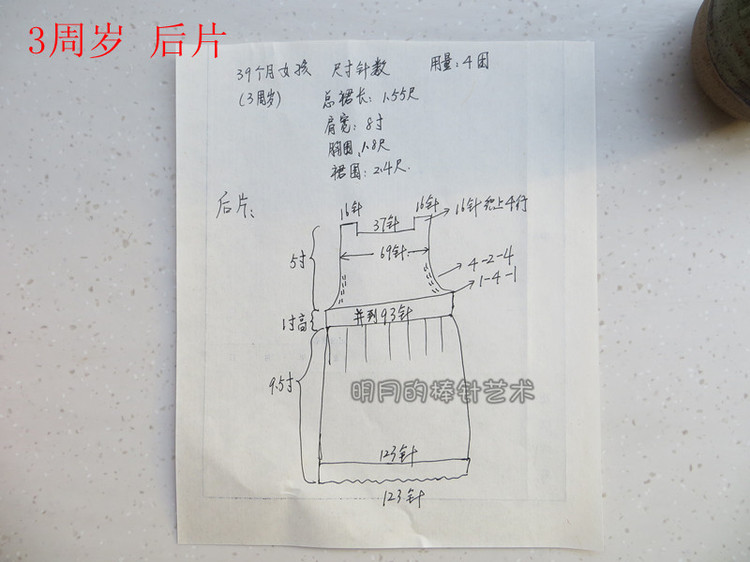 3周岁 后片
39个月女孩 尺寸针数 用量:4团
(3周岁) 总裙长:1.55尺
肩宽:8寸
胸围:1.8尺
裙围:2.4尺
后片:
16针 37针 16针 16针织上4行
5寸 69针 4-2-4
1-4-1
1寸高 并到93针
9.5寸
明月的棒针艺术
123针
123针